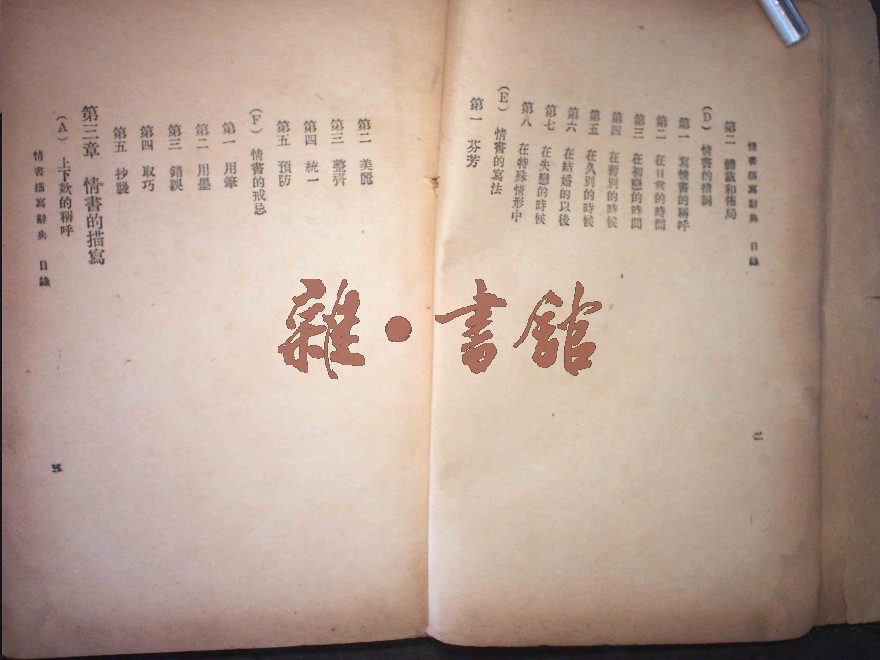 情書描寫辭典 目錄
二
第二 體裁和佈局
(D) 情書的措詞
第一 寫情書的稱呼
第二 在日常的時間
第三 在初戀的時間
第四 在暫別的時候
第五 在久別的時候
第六 在結婚的以後
第七 在失戀的時候
第八 在特殊情形中
(E) 情書的寫法
第一 芬芳
第二 美麗
第三 整齊
第四 統一
第五 預防
(F) 情書的戒忌
第一 用筆
第二 用墨
第三 錯誤
第四 取巧
第五 抄襲
第三章 情書的描寫
(A) 上下款的稱呼
情書描寫辭典 目錄
雜·書館